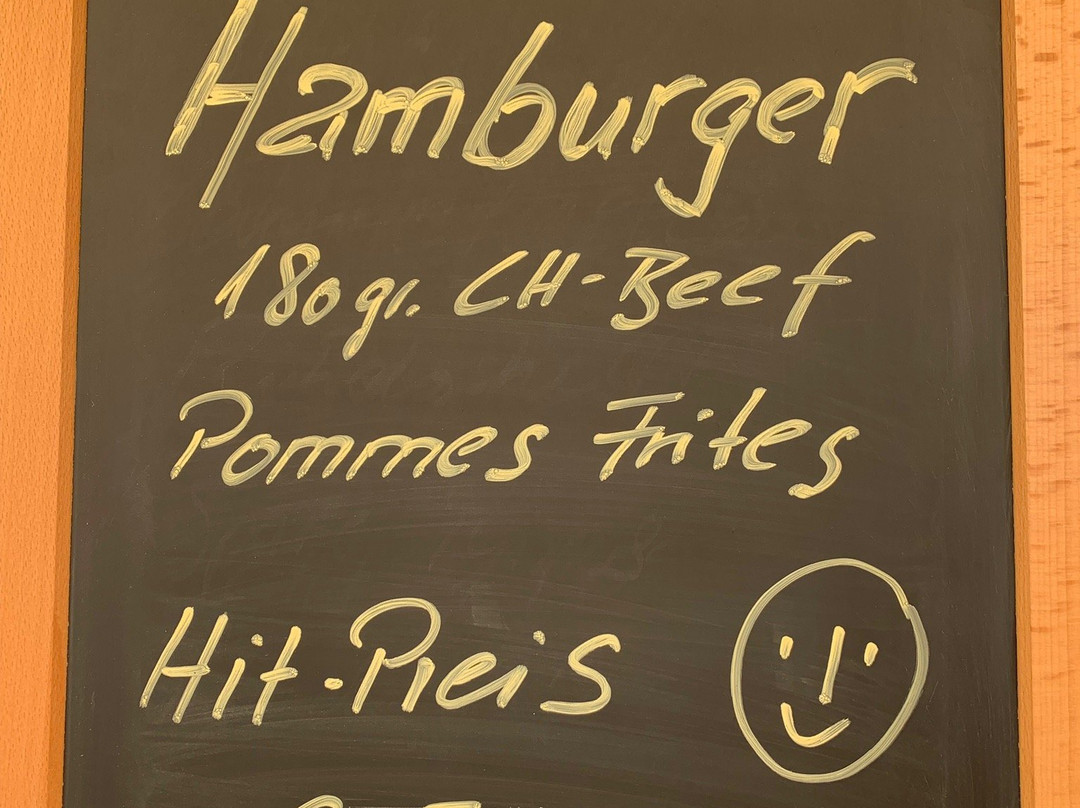 Hamburger
180gr. CH-Beef
Pommes Frites
Hit-Preis